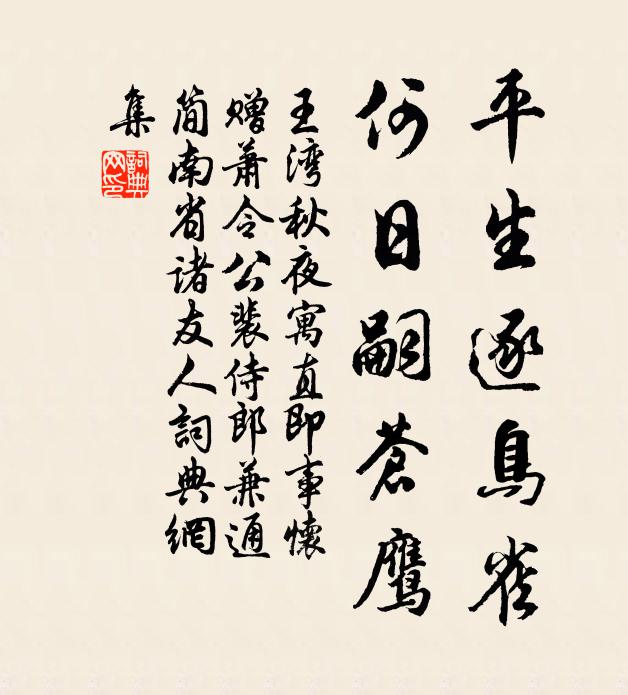 平生逐鳥雀
何日嗣蒼鷹
王湾秋夜寓直即事懷
贈蕭令公裴侍郎兼通
简南省諸友人詞典網
集
詞典
网印